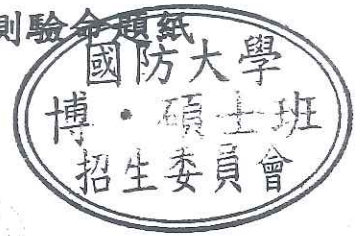 測驗命題紙
國防大學
博・碩士班
招生委員會